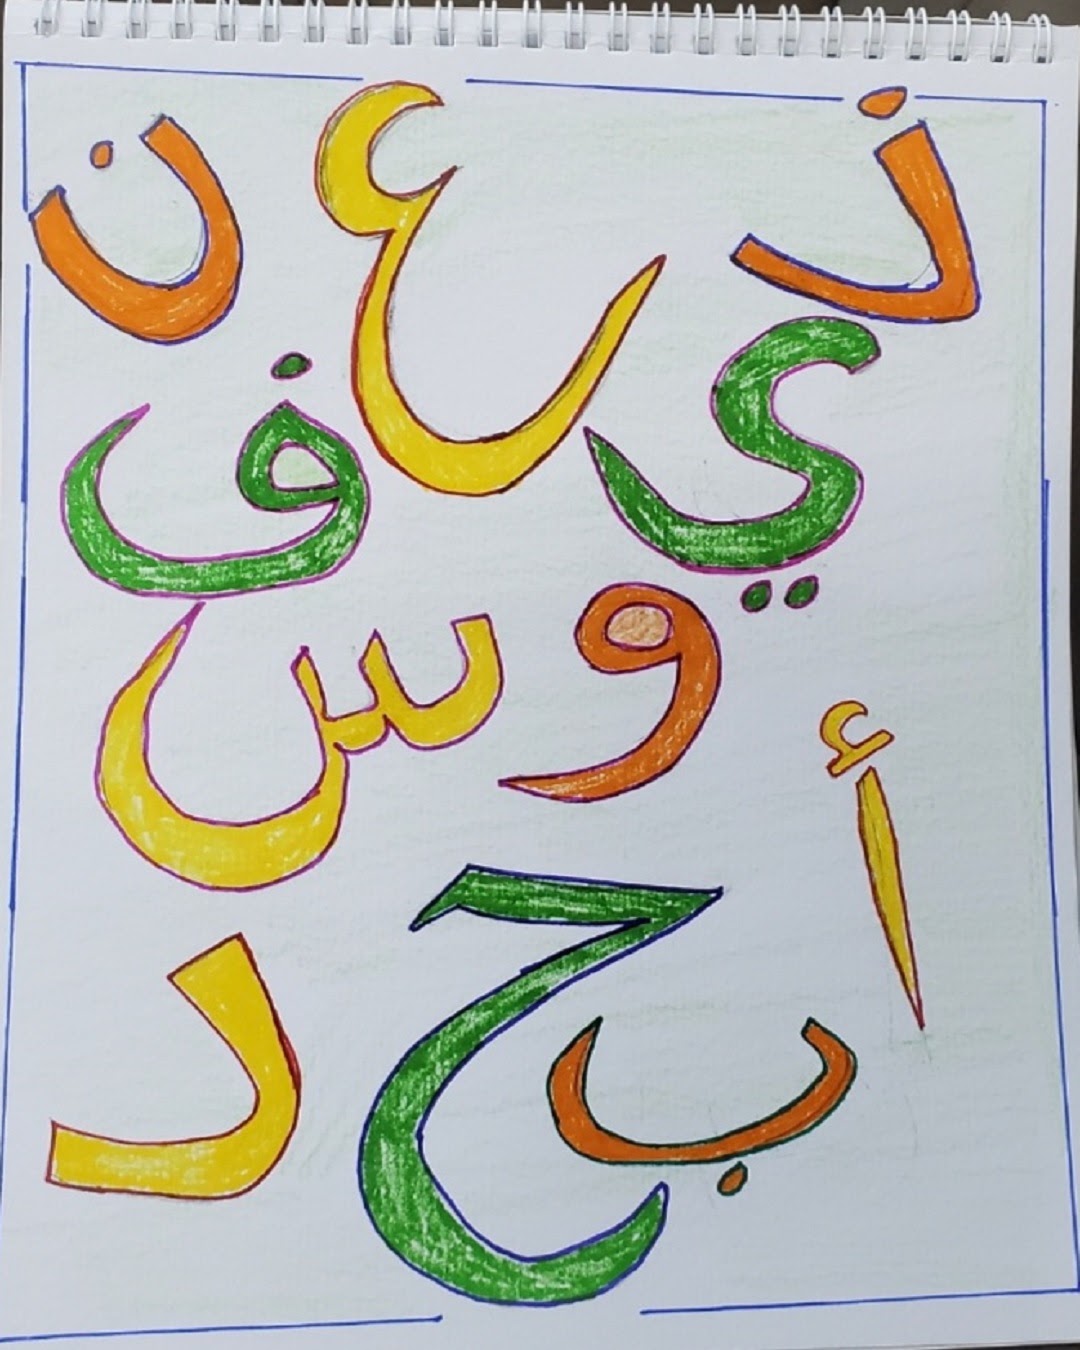 ذ ع ن
ي ف
و س
أ
ب ح د